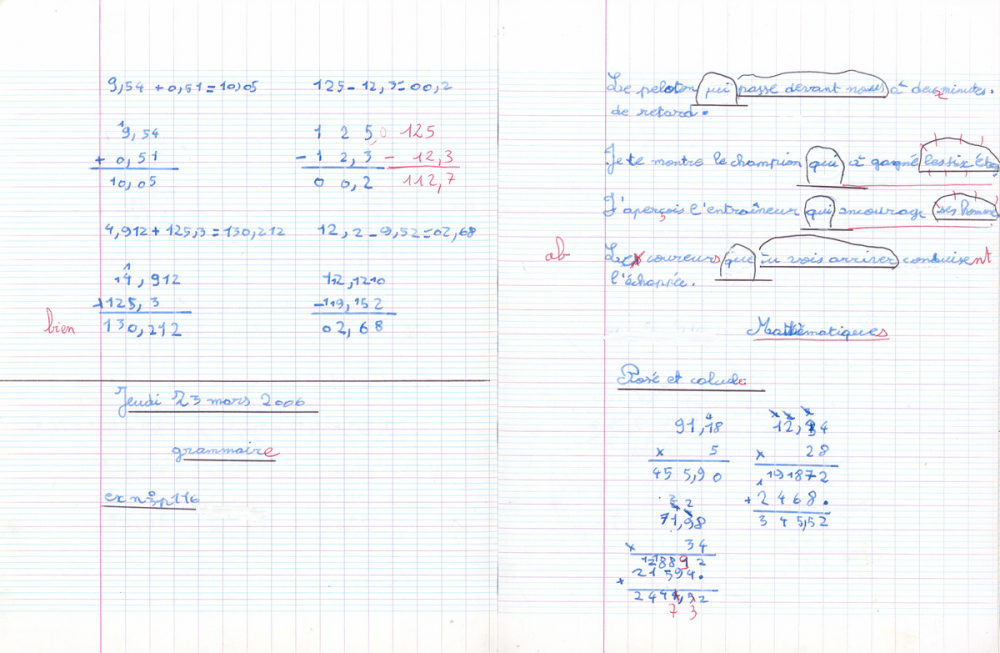 9,54 + 0,51 = 10,05
125 - 12,3 = 00,2
9,54
+ 0,51
10,05
1 2 5,0
- 1 2,3
0 0,2
125
- 12,3
112,7
4,912 + 125,3 = 130,212
12,2 - 9,52 = 02,68
4,912
+ 125,3
130,212
12,1210
- 119,152
02,68
bien
Jeudi 23 mars 2006
grammaire
ex n°3 p116
Le peloton qui passe devant nous à deux minutes.
de retard.
Je te montre le champion qui à gagné les six éta
J'aperçois l'entraîneur qui encourage ses homm
ab
Les coureurs que tu vois arriver conduisent
l'échappée.
Mathématiques
Posé et calcule
91,18
x 5
455,90
12,34
x 28
+ 2468.
345,52
71,98
x 34
+ 21594.
7 3